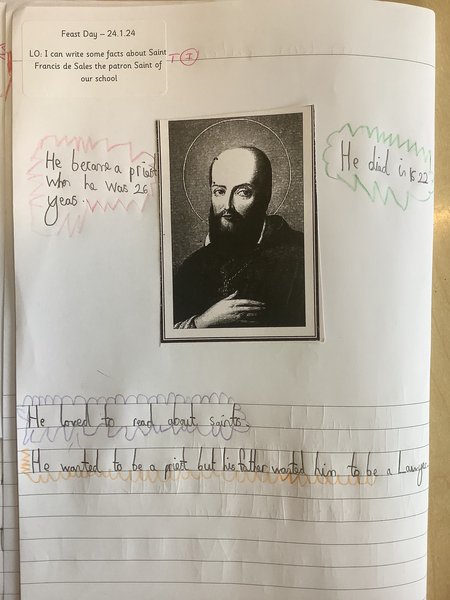 Feast Day – 24.1.24
LO: I can write some facts about Saint
Francis de Sales the patron Saint of
our school
T I
He became a priest
when he was 26
yeas.
He died in 1622
He loved to read about saints.
He wanted to be a priet but his father wanted him to be a Lawyer